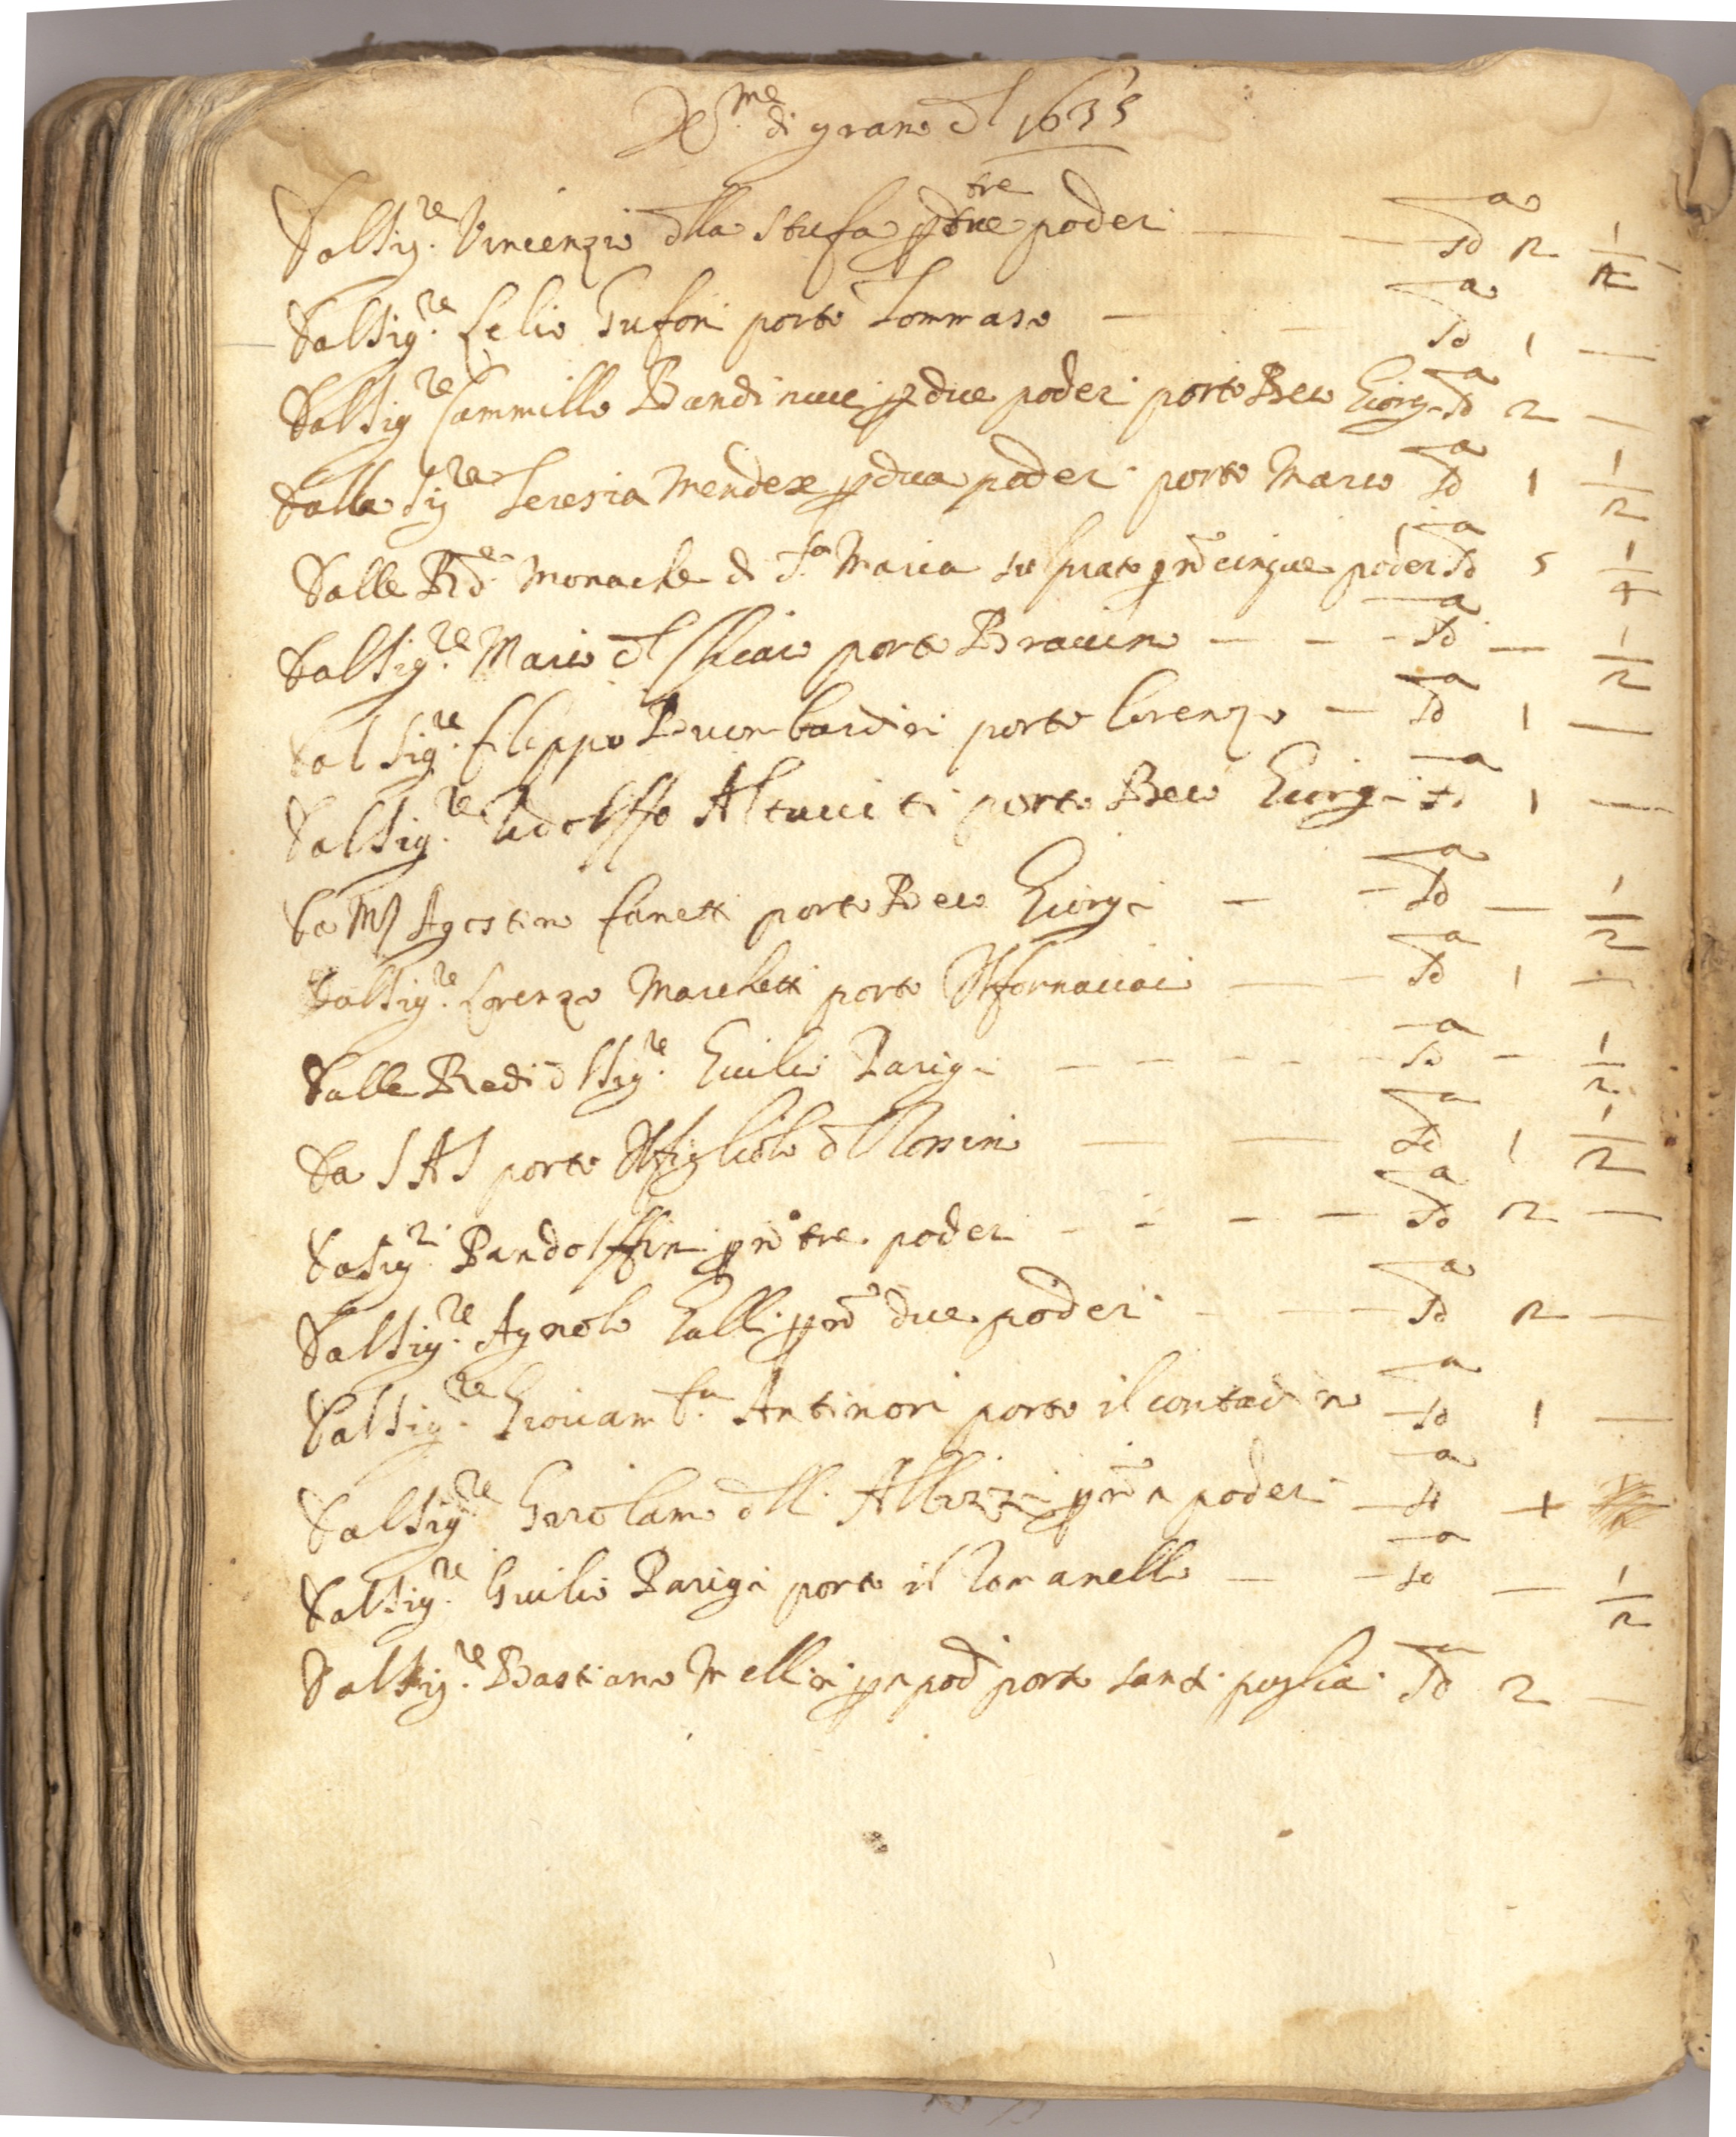 X.me di grano dl 1635
Dal Sig.re Vincenzio dlla Stufa p tre poderi — — Sa 2 1/2
Dal Sig.re Lelio Gufoni porto Tommaso — — Sa 1 —
Dal Sig.re Cammillo Bandinucci p due poderi porto Beco Giorgi Sa 2 —
Dalla Sig.ra Teresia Mendex p dua poderi porto Marco Sa 1 1/2
Dalle Rde Monache di S.ta Maria sul prato p nd cinque poderi Sa 5 1/4
Dal Sig.re Mario dl porto Bracino — — — Sa — 1/2
Dal Sig.re Filippo Buonbardini porto Lorenzo — Sa 1 —
Dal Sig.re Adolffo Altuuiti porto Beco Giorgi Sa 1 —
Da Mr Agostino Canetti porto Beco Giorgi — — Sa — 1/2
Dal Sig.re Lorenzo Marchetti porto Il fornaciaio — — Sa 1 —
Dalle Redi dl Sig.re Giulio Parigi — — — — — Sa — 1/2
Da S A S porto Il figliolo dl — — Sa 1 1/2
Da Sig.ri Pandolffini p nd tre poderi — — — — Sa 2 —
Dal Sig.re Agnolo Galli p nd due poderi — — — Sa 2 —
Dal Sig.re Giouam B.a Antinori porto il contadino — Sa 1 —
Dal Sig.re Girolamo dlli Albizzi p nd 2 poderi — Sa 4
Dal Sig.re Giulio Parigi porto il Romanello — — Sa — 1/2
Dal Sig.re Bastiano Mellini p 2 pod porto Santi puglia Sa 2 —